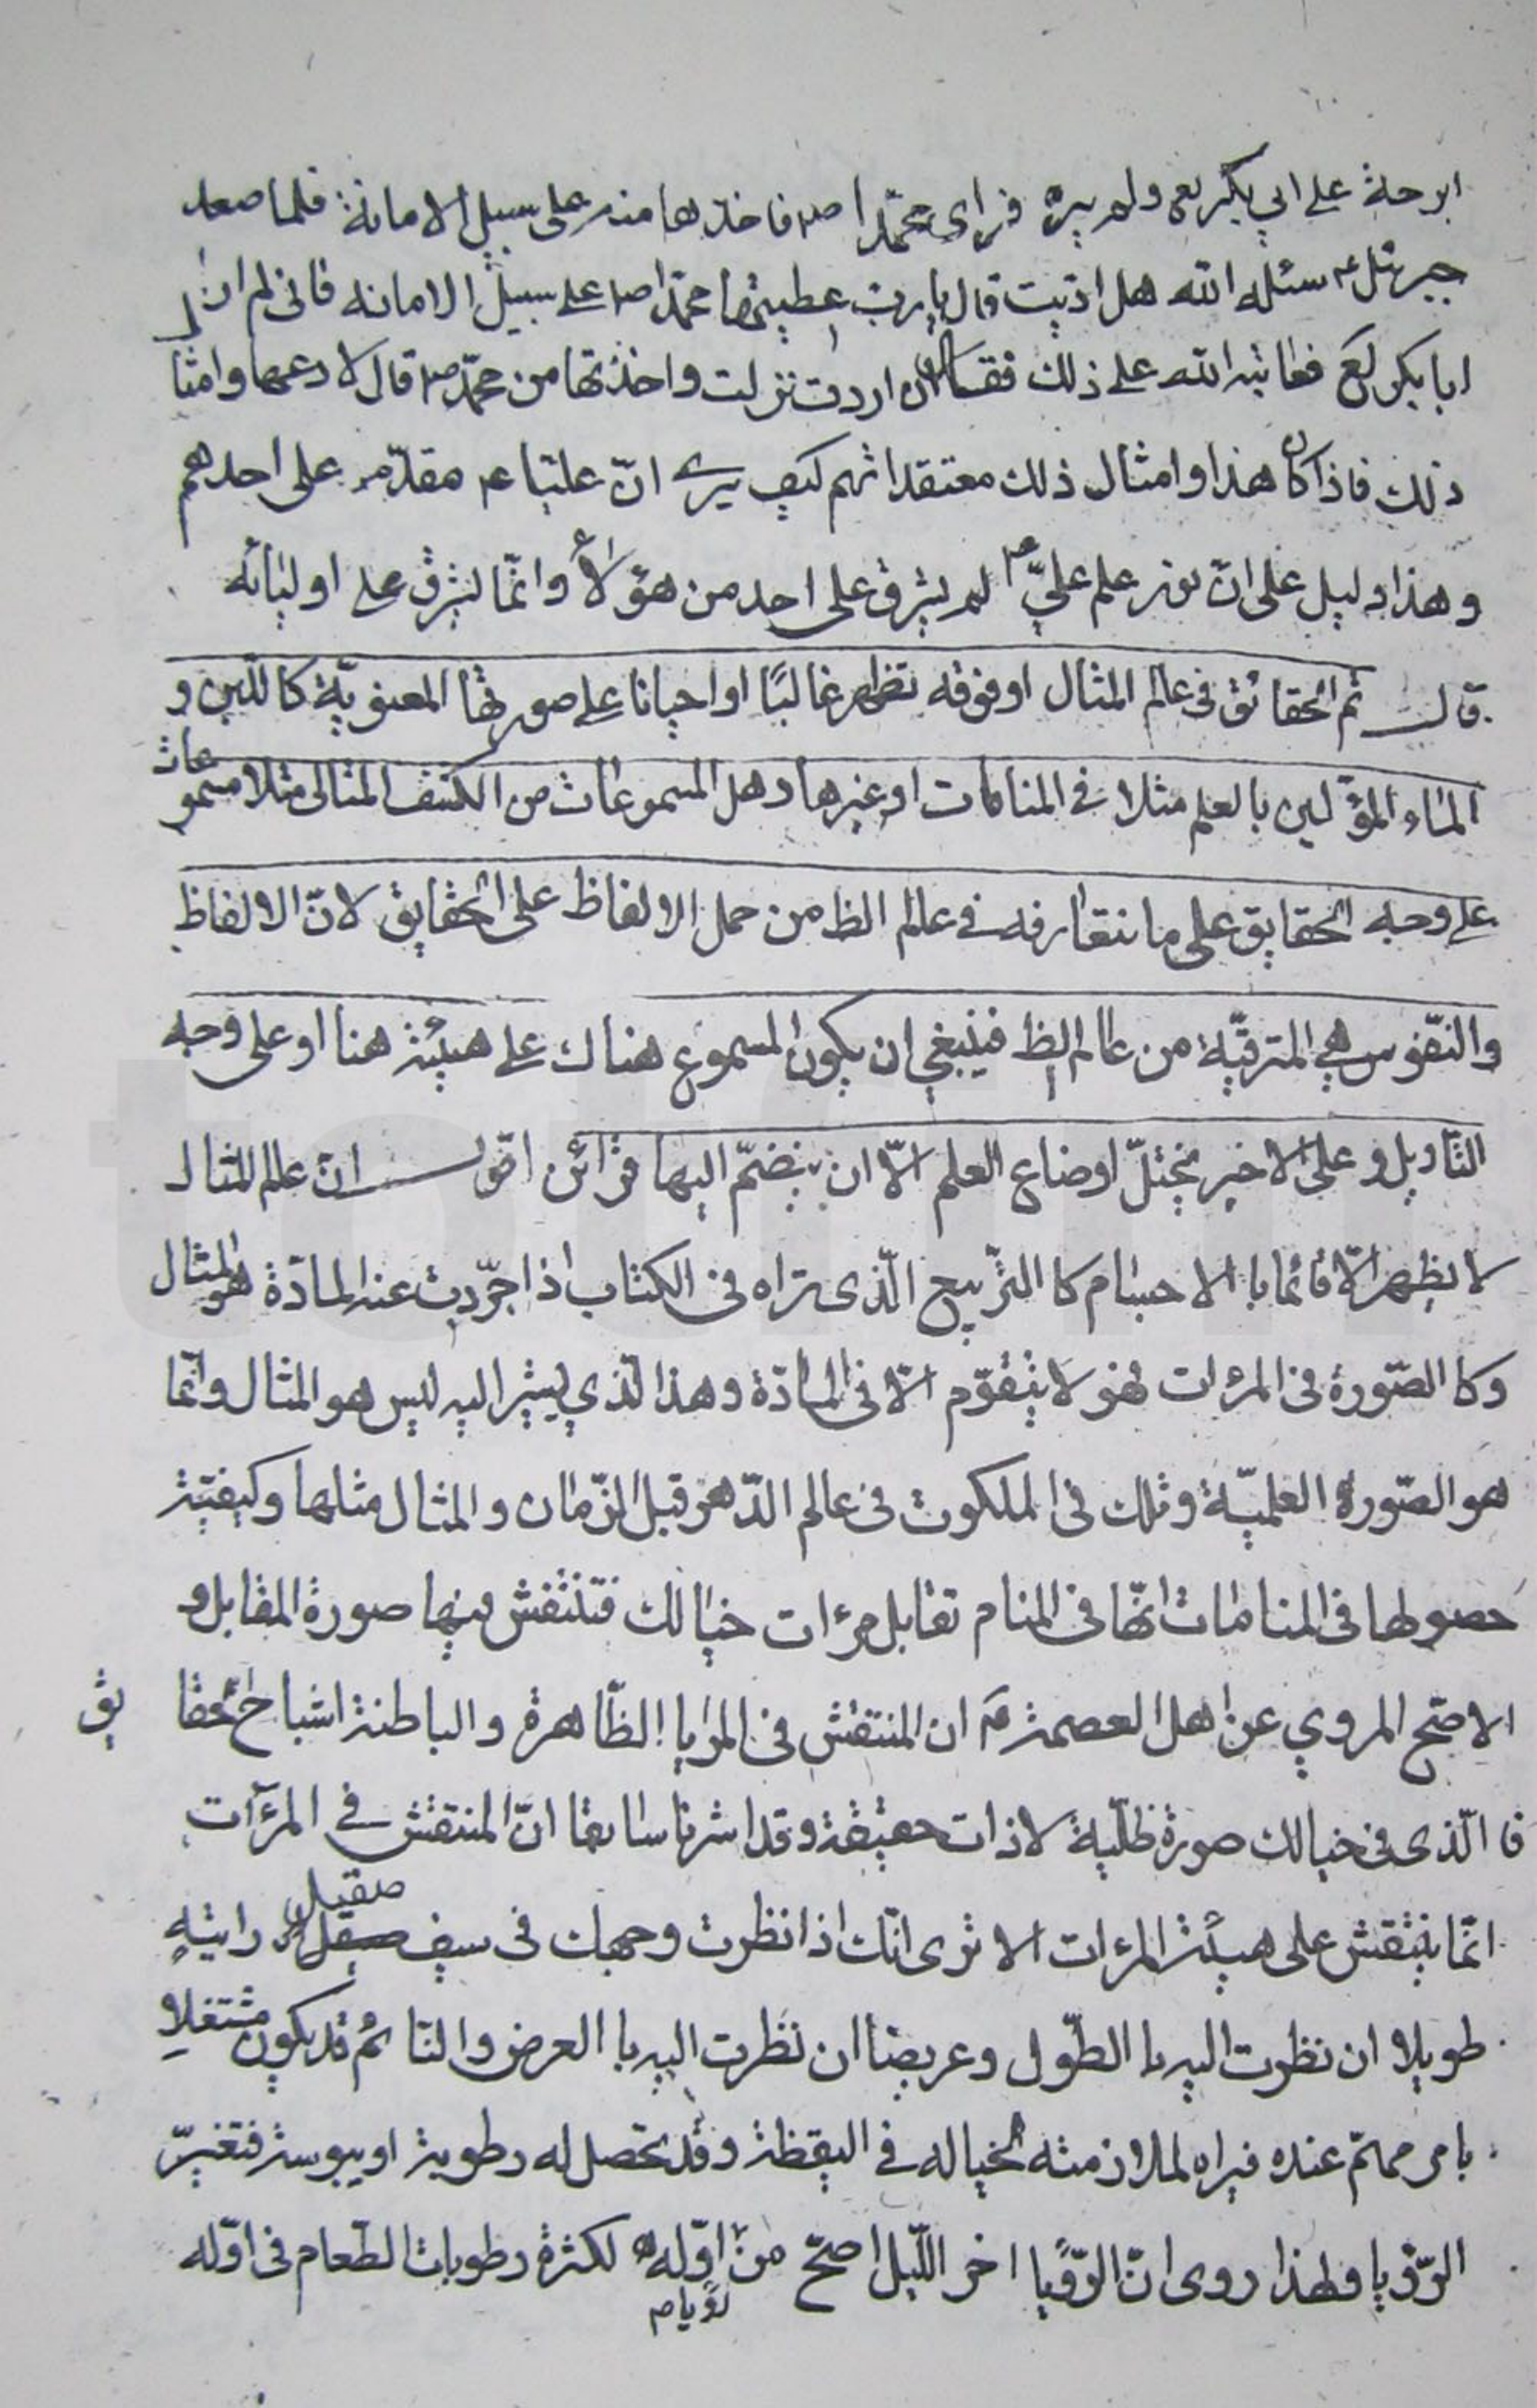 ابو حلة على ابي بكر لع ولم يره فراى محمّدا ص فاخذها منه على سبيل الامانة فلما صعد
جبرئل ع سئله الله هل ادّيت قال يا رب اعطيتها محمّدا ص على سبيل الامانه فانى لم ار
ابا بكر لع فعاتبه الله على ذلك فقال ان اردت نزلت واخذتها من محمّد ص قال لا دعها وامثا
ذلك فاذا كان هذا وامثال ذلك معتقداتهم كيف يرى انّ عليّا ع مقدّم على احدهم
وهذا دليل على انّ نور علم عليّ ع لم يشرق على احد من هؤلاء وانّما يشرق على اوليائه
قال ثم الحقائق فى عالم المثال او فوقه تظهر غالبًا او احيانا على صورتها المعنويّة كاللبن و
الماء المؤوّلين بالعلم مثلا فى المنامات او غيرها وهل المسموعات من الكشف المثالى مثلا مسموعات
على وجه الحقايق على ما نتعارفه فى عالم الظ من حمل الالفاظ على الحقايق لانّ الالفاظ
والنّفوس هي المترقّية من عالم الظ فينبغي ان يكون المسموع هناك على هيئة هنا او على وجه
التاويل وعلى الاخير يختلّ اوضاع العلم الّا ان ينضمّ اليها قرائن اقول ان عالم المثال
لا يظهر الّا قائما بالاجسام كا التربيع الّذى تراه فى الكتاب اذا جرّدت عنه المادّة هو المثال
وكا الصّورة فى المرءات فهو لا يتقوّم الّا فى المادّة وهذا الّذي يشير اليه ليس هو المثال وانّما
هو الصّورة العلميّة وتلك فى الملكوت فى عالم الدّهر قبل الزّمان والمثال مثالها وكيفيّة
حصولها فى المنامات انّها فى المنام تقابل مرءات خيالك فتنتقش فيها صورة المقابل و
الاصحّ المروي عن اهل العصمة ع ان المنتقش فى المرايا الظّاهرة والباطنة اشباح الحقايق
فا الّذى فى خيالك صورة ظلّية لا ذات حقيقة وقد اشرنا سابقا انّ المنتقش في المرآت
انّما ينتقش على هيئة المرءات الا ترى انّك اذا نظرت وجهك فى سيف صقيل رايته
طويلا ان نظرت اليه با الطّول وعريضا ان نظرت اليه با العرض والنائم قد يكون مشتغلا
بامر مهمّ عنده فيراه لملازمته لخياله في اليقظة وقد يحصل له رطوبة او يبوسة فتغيّر
الرّؤيا ولهذا روى انّ الرّؤيا اخر اللّيل اصحّ من اوّله لكثرة رطوبات الطّعام فى اوّله